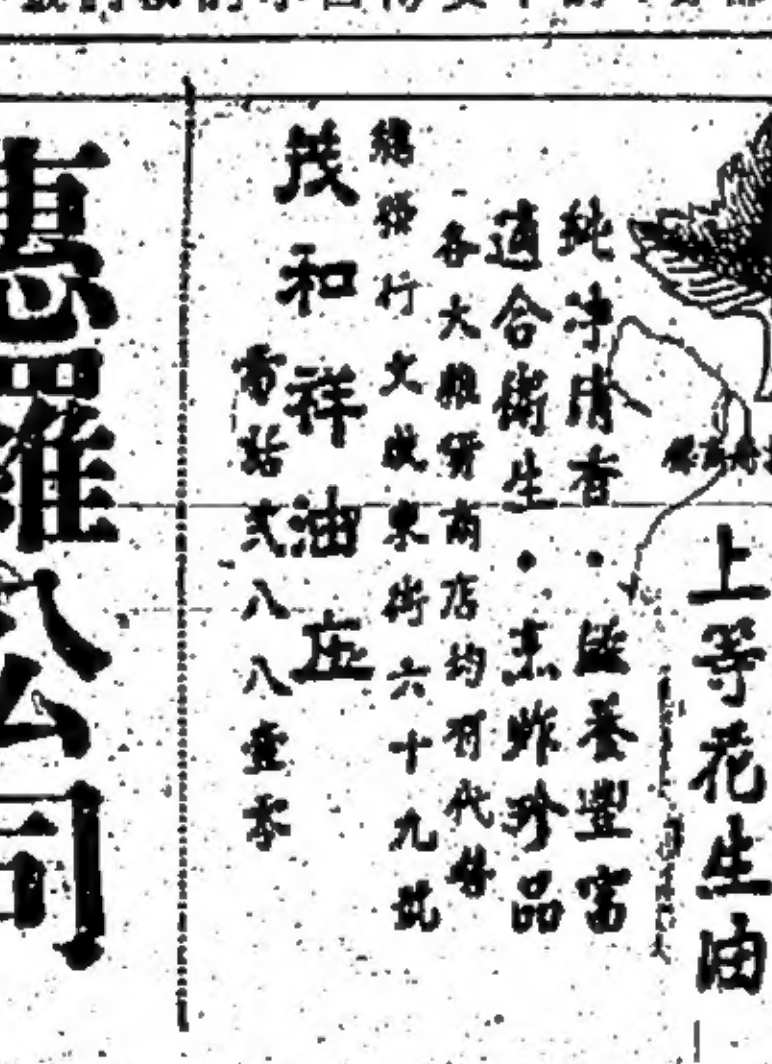 上等花生油
純淨清香・滋養豐富
適合衛生・烹炸珍品
各大雜貨商店均有代售
總發行文咸東街六十九號
茂和祥油庄
電話弍八八壹零
惠羅公司